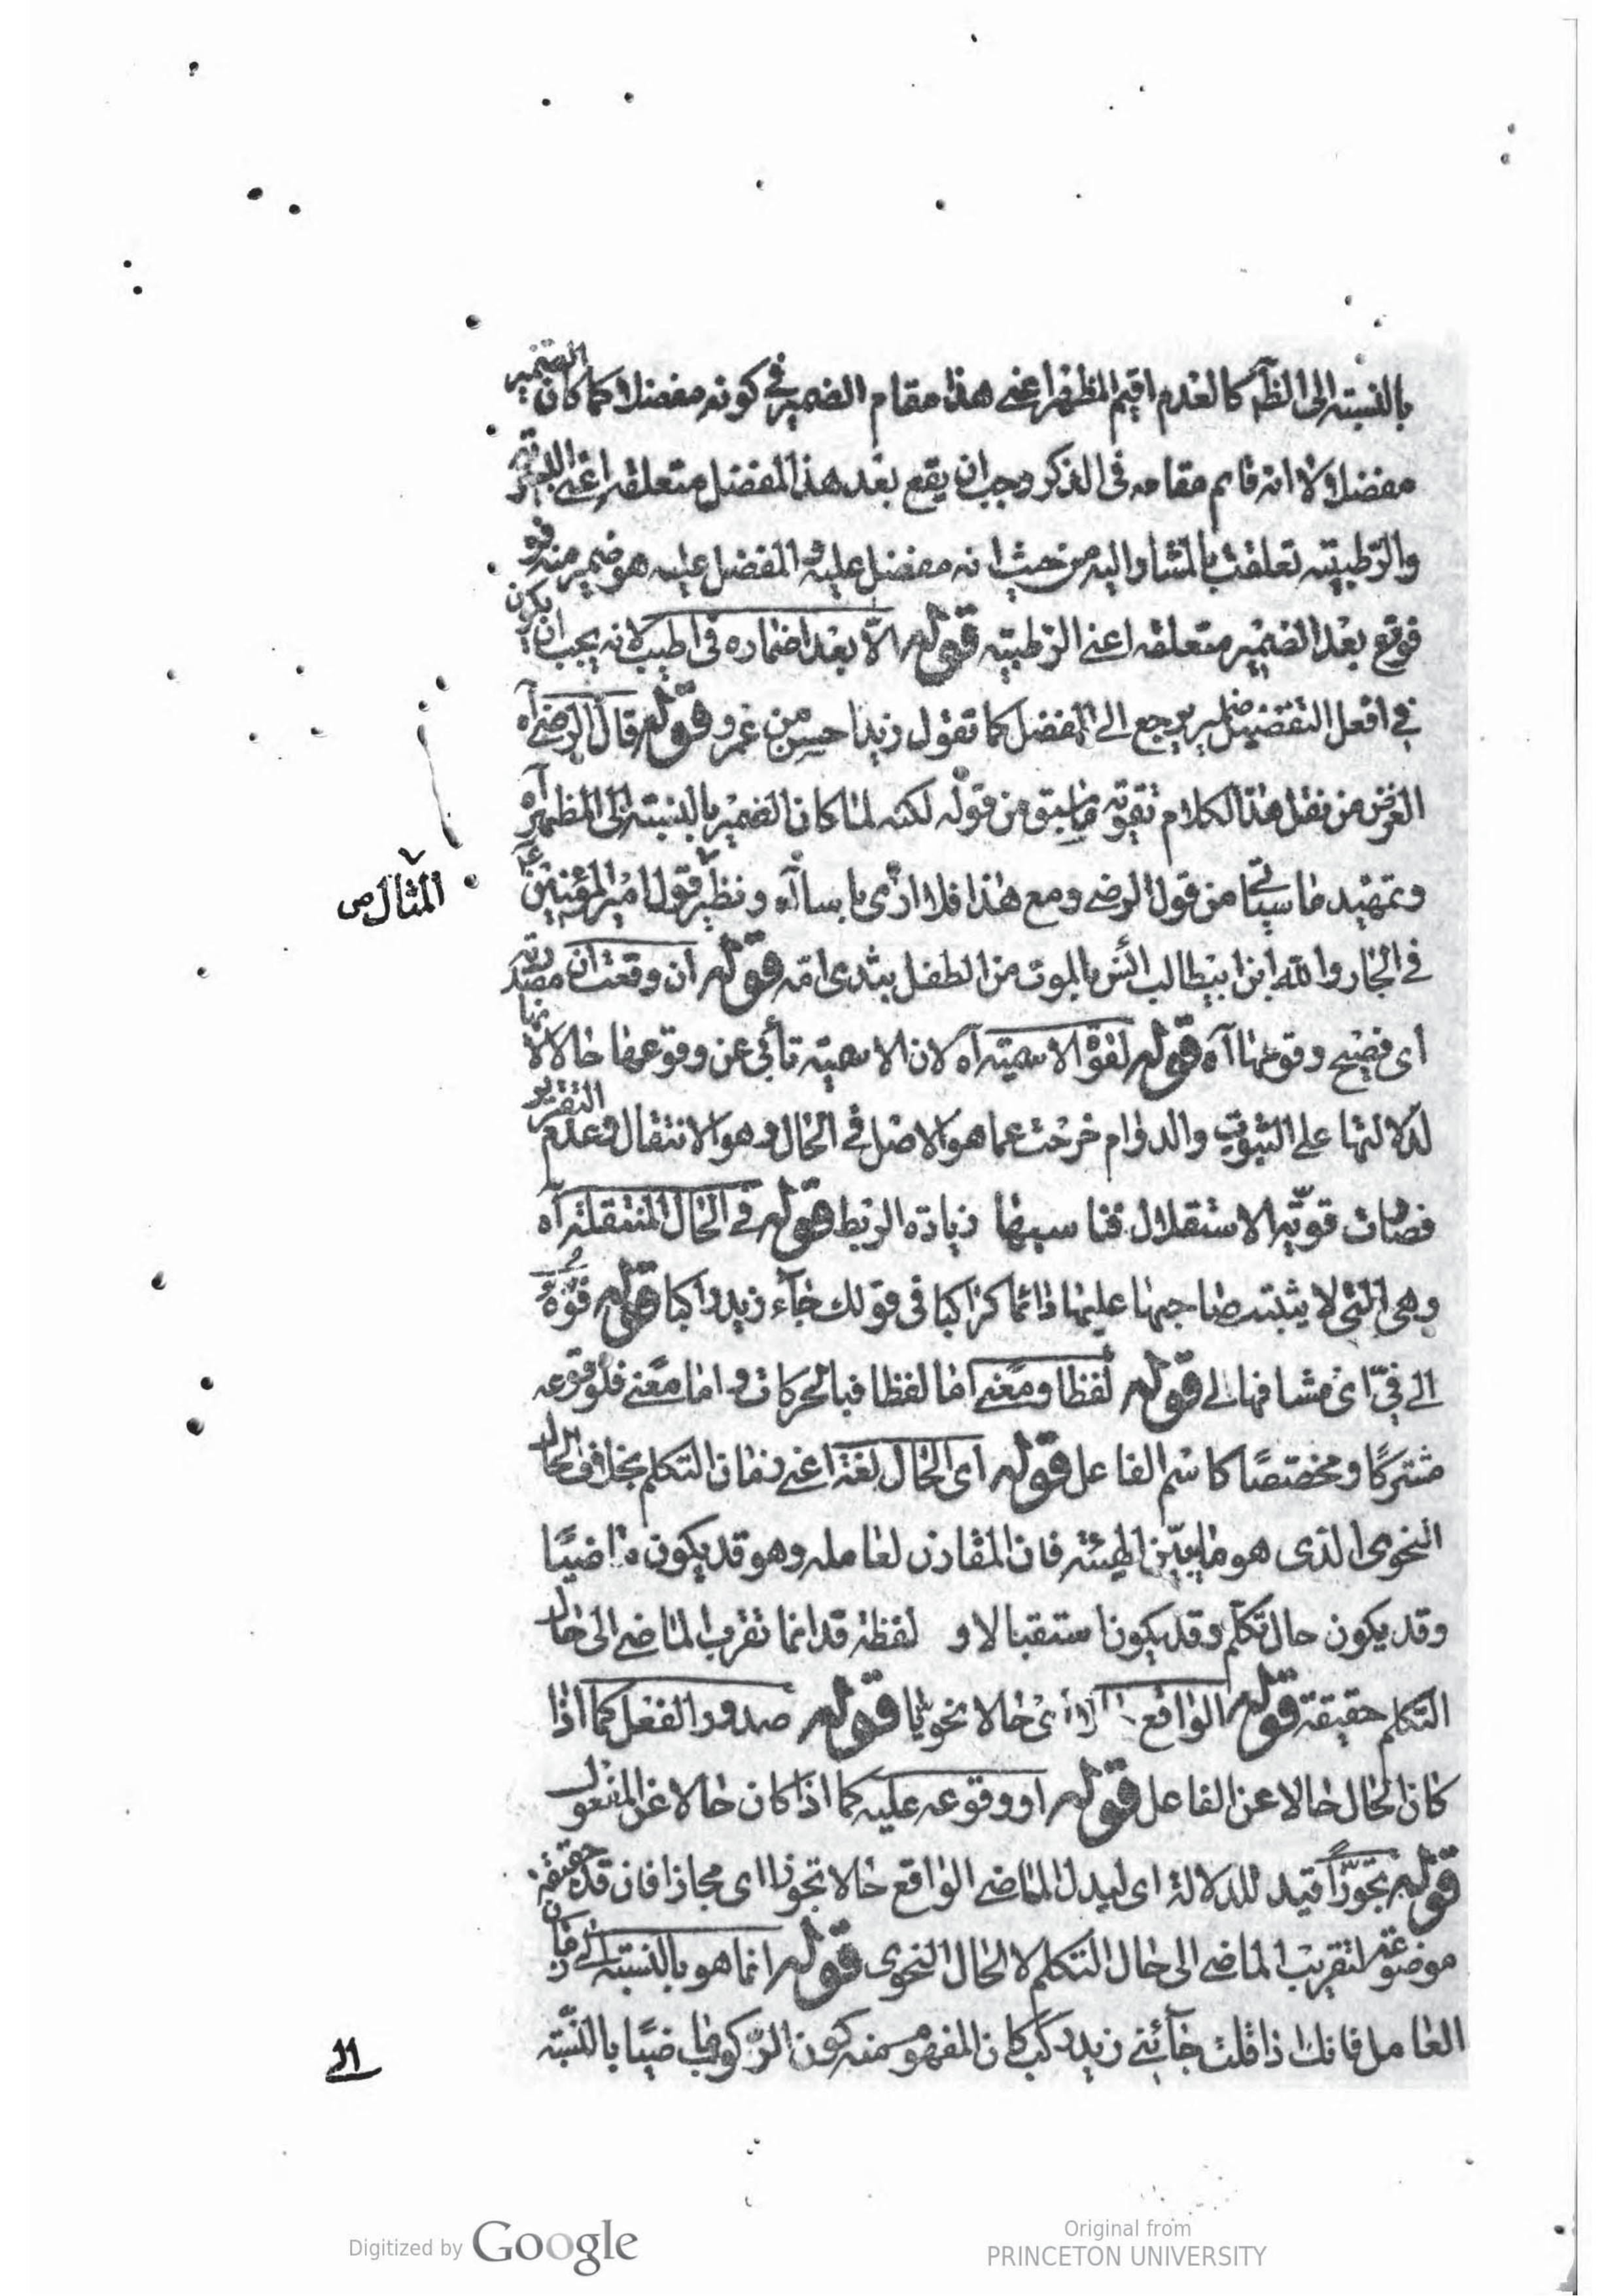 بالنسبته الى الظآ كالعدم اقيم المظهر اعنى هذا مقام الضمير فى كونه مفضلا كما كان الضمير
مفضلا ولانه قايم مقامه فى الذكر وجب ان يقع بعد هذا المفضل متعلقه اعنى البسرية
والرطبيته تعلقت بالمشار اليه من حيث انه مفضل عليه والمفضل عليه هو ضمير منه
فوقع بعد الضمير متعلقه اعنى الرطبيته قوله الا بعد اضماره فى اطيب لانه يجب ان يكون
فى افعل التفضيل ضمير يرجع الى المفضل كما تقول زيد احسن من عمرو قوله قال الرضى آه
الغرض من نقل هذا الكلام تقويته ما سبق من قوله لكنه لما كان الضمير بالنسبته الى المظهر آه
وتمهيد ما سيأتى من قول الرضى ومع هذا فلا ارى باسا آه ونظير قول امير المؤمنين ع
المثال ص
فى الخار والله ابن ابيطالب انس بالموت من الطفل بثدى امه قوله ان وقعت ان مصدرته
اى فصيح وقوعها آه قوله لقوة الاسميته آه لان الاسميته تأبى عن وقوعها حالا لانها
لدلالتها على الثبوت والدوام خرجت عما هو الاصل فى الحال وهو الانتقال وعدم التقرير
فصارت قويه الاستقلال فناسبها زيادة الربط قوله فى الحال المنتقلة آه
وهى التى لا يثبت صاحبها عليها دائما كراكبا فى قولك جآء زيد راكبا قوله فوه
الى فىّ اى مشافها الى قوله لفظا ومعنى اما لفظا فبالحركات واما معنى فلوقوعه
مشتركًا ومختصًا كاسم الفاعل قوله اى الحال لغة اعنى زمان التكلم بخلاف الحال
النحوى الذى هو ما يبيّن الهيئة فان المقارن لعامله وهو قد يكون ماضيًا
وقد يكون حال تكلم وقد يكون استقبالا و لفظة قد انما تقرب الماضى الى حال
التكلم حقيقة قوله الواقع حالا اى حالا نحويا قوله صدور الفعل كما اذا
كان الحال حالا عن الفاعل قوله او وقوعه عليه كما اذا كان حالا عن المفعول
قوله تجوّزاً قيد للدلالة اى ليدل الماضى الواقع حالا تجوزا اى مجازا فان قد حقيقة
موضوعة لتقريب الماضى الى حال التكلم لا الحال النحوى قوله انما هو بالنسبته الى زمان
العامل فانك اذا قلت جآئنى زيد ركب كان المفهوم منه كون الركوب ماضيًا بالنسبّته
١١
Digitized by Google
Original from
PRINCETON UNIVERSITY